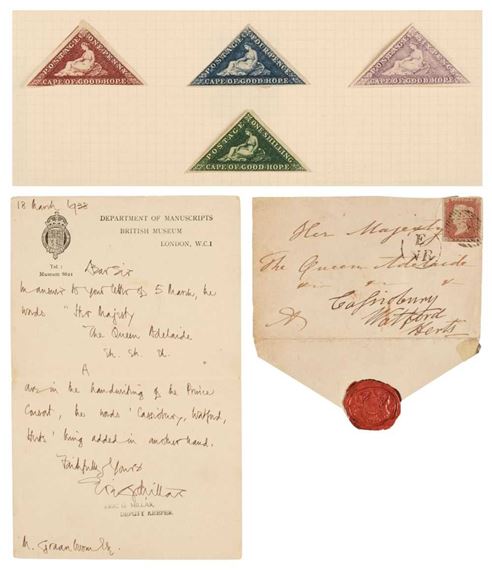 POSTAGE ONE PENNY
CAPE OF GOOD HOPE
POSTAGE FOURPENCE
CAPE OF GOOD HOPE
POSTAGE
CAPE OF GOOD HOPE
POSTAGE ONE SHILLING
CAPE OF GOOD HOPE
18 March 1938
DEPARTMENT OF MANUSCRIPTS
BRITISH MUSEUM
LONDON, W.C.1
Tel:
Museum
Dear Sir
In answer to your letter of 5 March, the
words "Her Majesty
The Queen Adelaide
A
are in the handwriting of the Prince
Consort, the words 'Cassiobury, Watford,
Herts' being added in another hand.
Faithfully Yours
Eric G Millar
ERIC G. MILLAR
DEPUTY KEEPER
Esq.
Her Majesty
The Queen Adelaide
Cassiobury
Watford
Herts
A